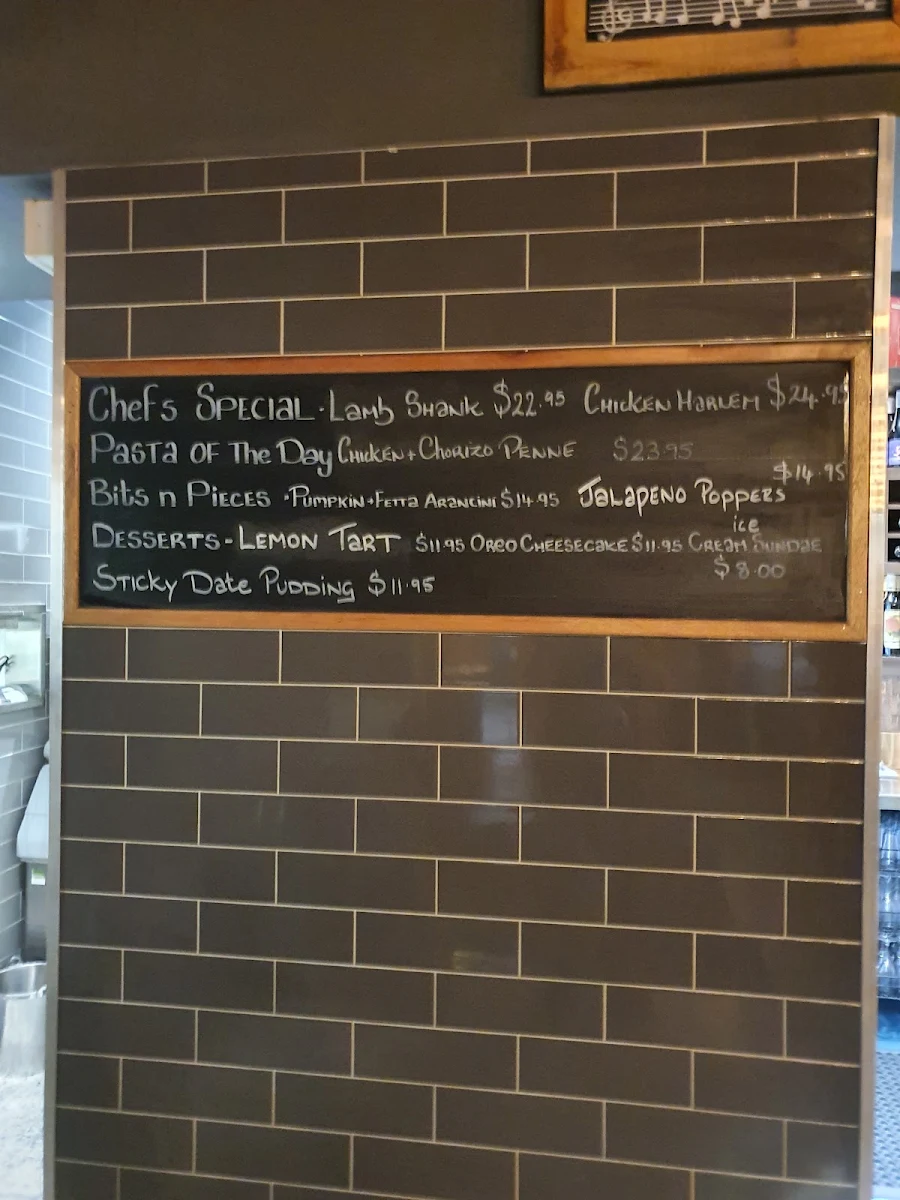 Chefs Special · Lamb Shank $22.95 Chicken Harlem $24.95
Pasta of The Day Chicken + Chorizo Penne $23.95
Bits n Pieces · Pumpkin + Fetta Arancini $14.95 Jalapeno Poppers $14.95
Desserts - Lemon Tart $11.95 Oreo Cheesecake $11.95 ice Cream Sundae $8.00
Sticky Date Pudding $11.95